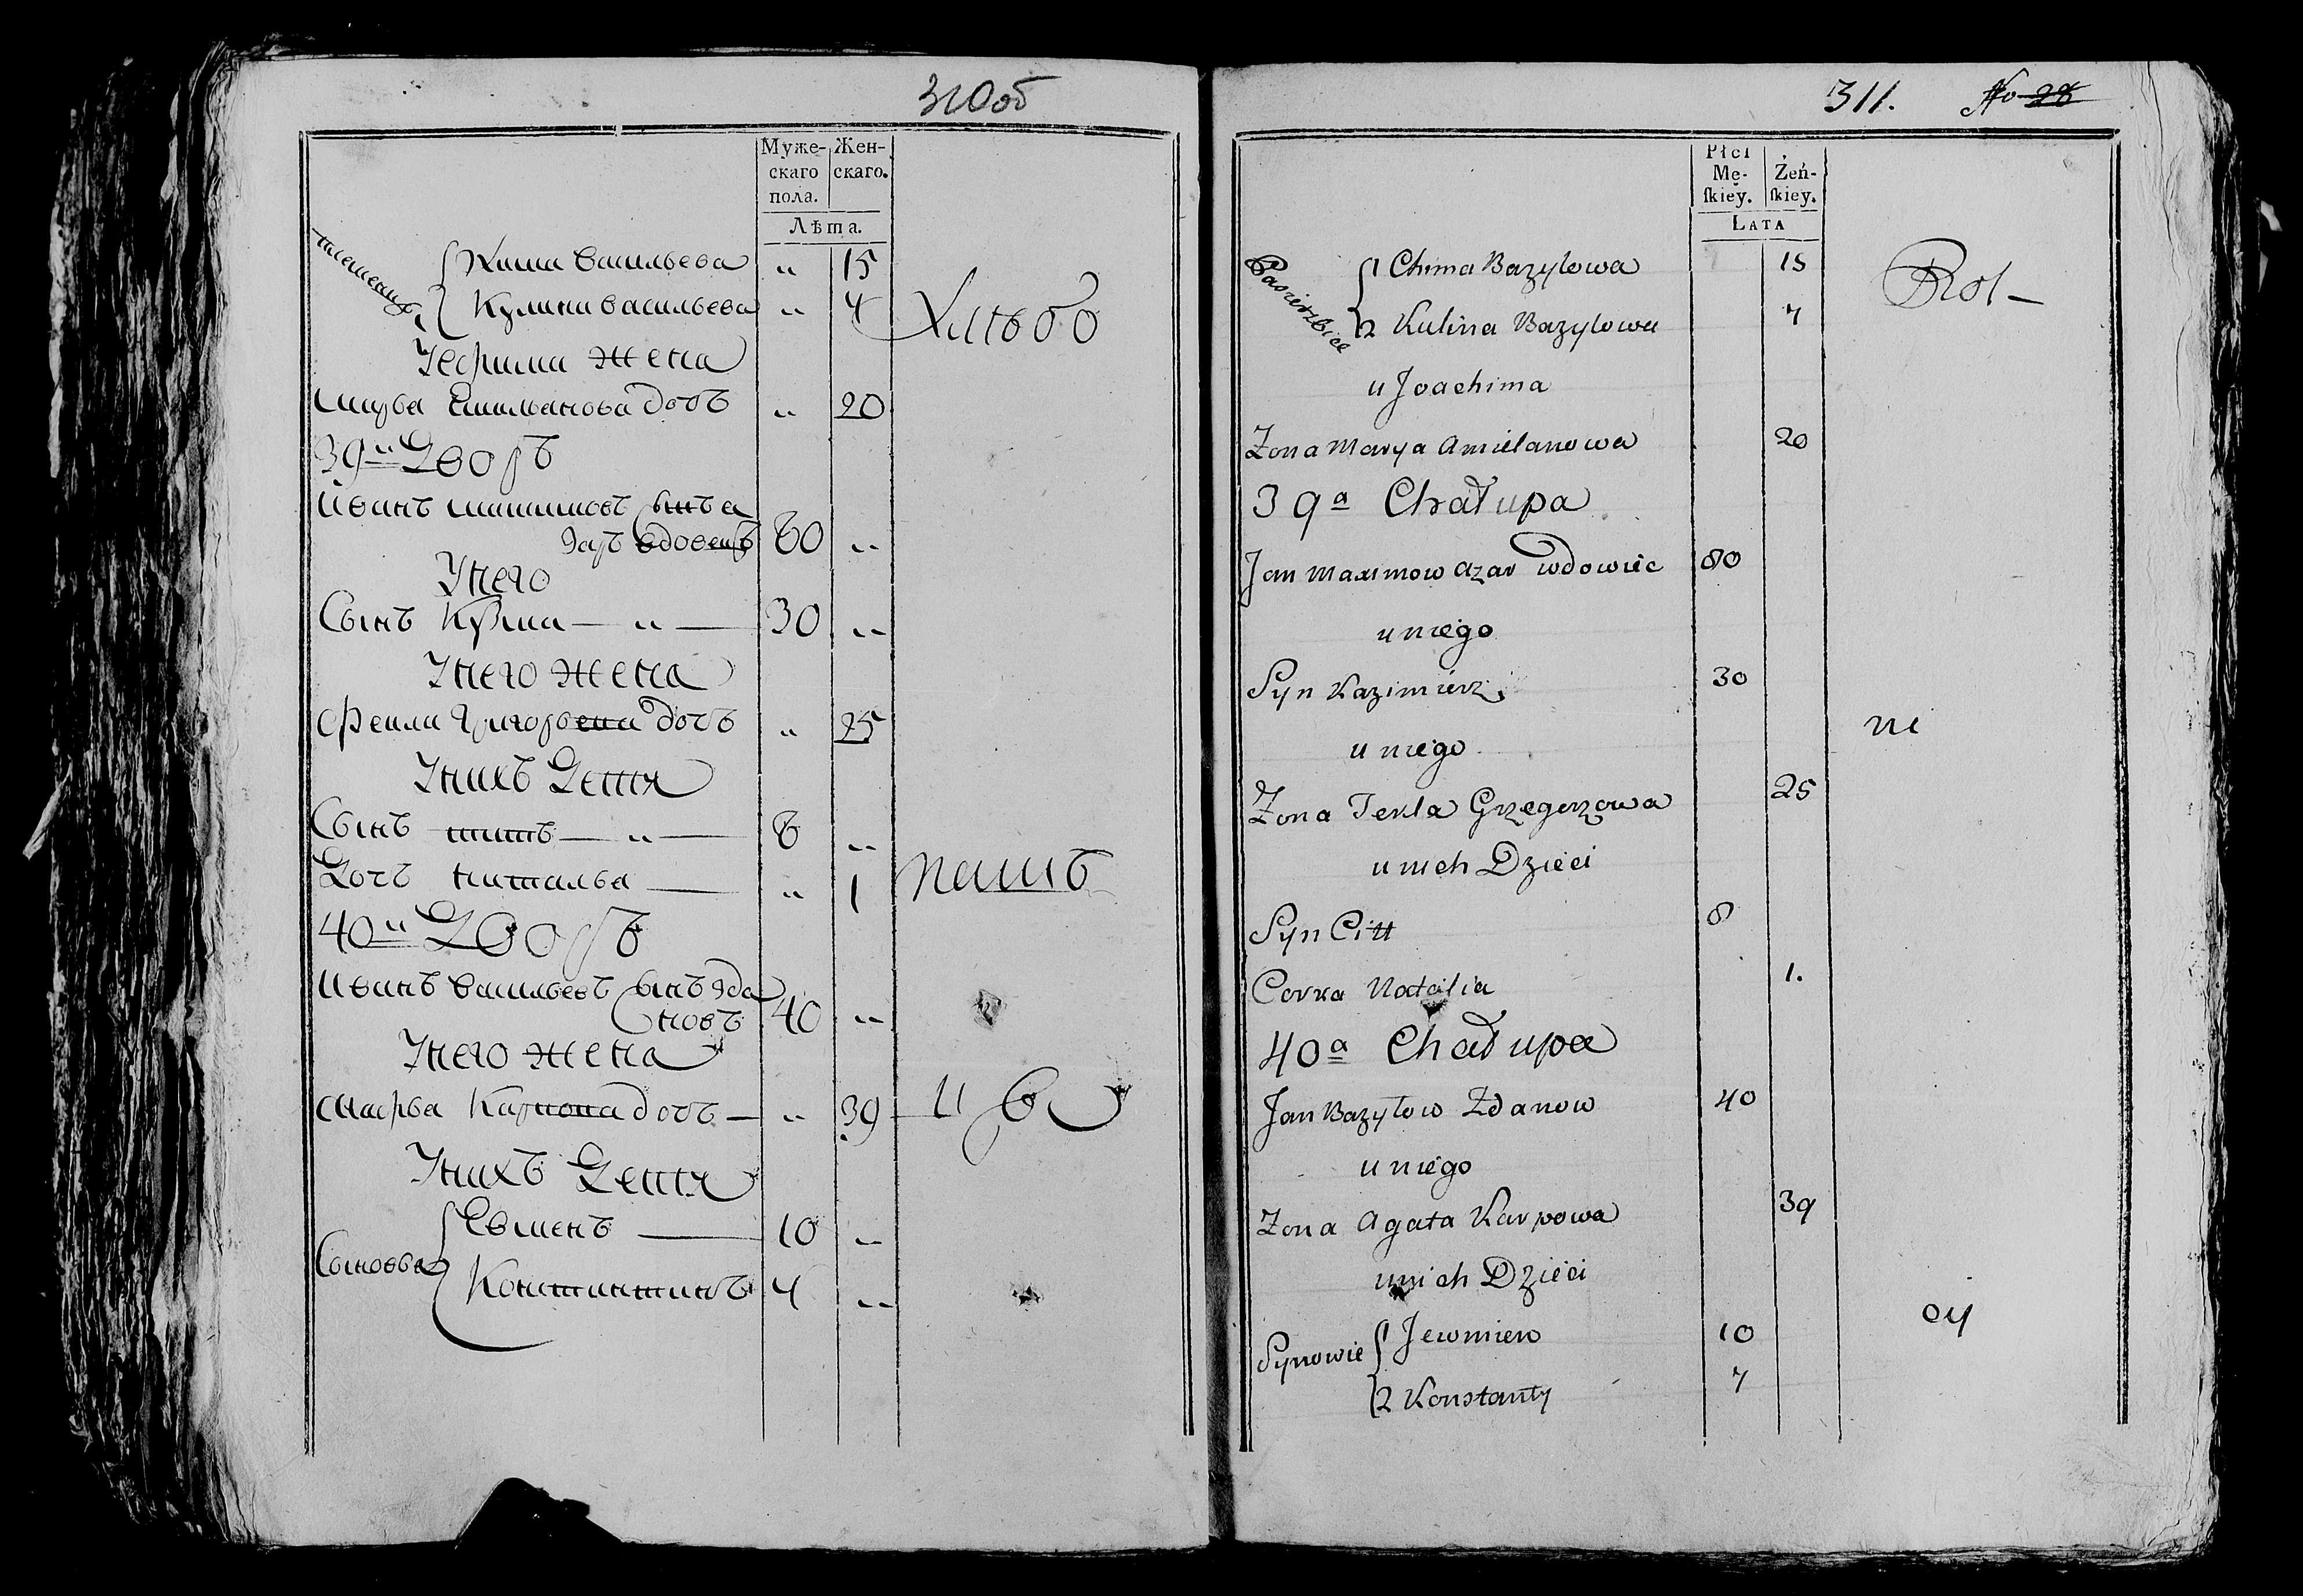 310об
Муже-
скаго
пола.
Жен-
скаго.
Лѣта.
Хима Васильева " 15
Кулина Васильева " 4
Хлѣбо
У Ефима жена
Емильянова дочь " 20
39й Дворъ
Иванъ Максимовъ сынъ а
заръ вдовецъ 80 "
У него
Сынъ Кузма — " — 30 "
У него жена
Фекла Григорьева дочь " 25
У нихъ дети
Сынъ титъ — " — 8 "
Дочь Наталья — " 1
пашъ
40й Дворъ
Иванъ Васильевъ сынъ Жда
новъ 40 "
У него жена
Агафья Карпова дочь — " 39
У нихъ дети
Сыновья
Евменъ — 10 "
Константинъ 4 "
311. No 28
Płci
Mę-
ſkiey.
Żeń-
ſkiey.
LATA
Pasierzbice
1 Chima Bazylowa 15
2 Kulina Bazylowa 4
Rol-
u Joachima
Zona Marya Amielanowa 20
39a Chałupa
Jan Maximow Azar wdowiec 80
u niego
Syn Kazimierz 30
u niego
ni
Zona Tekla Grzegorzowa 25
u nich Dzieci
Syn Citt 8
Corka Natalia 1.
40a Chałupa
Jan Bazyłow Zdanow 40
u niego
Zona Agata Karpowa 39
u nich Dzieci
cy
Synowie
1 Jewmien 10
2 Konstanty 4